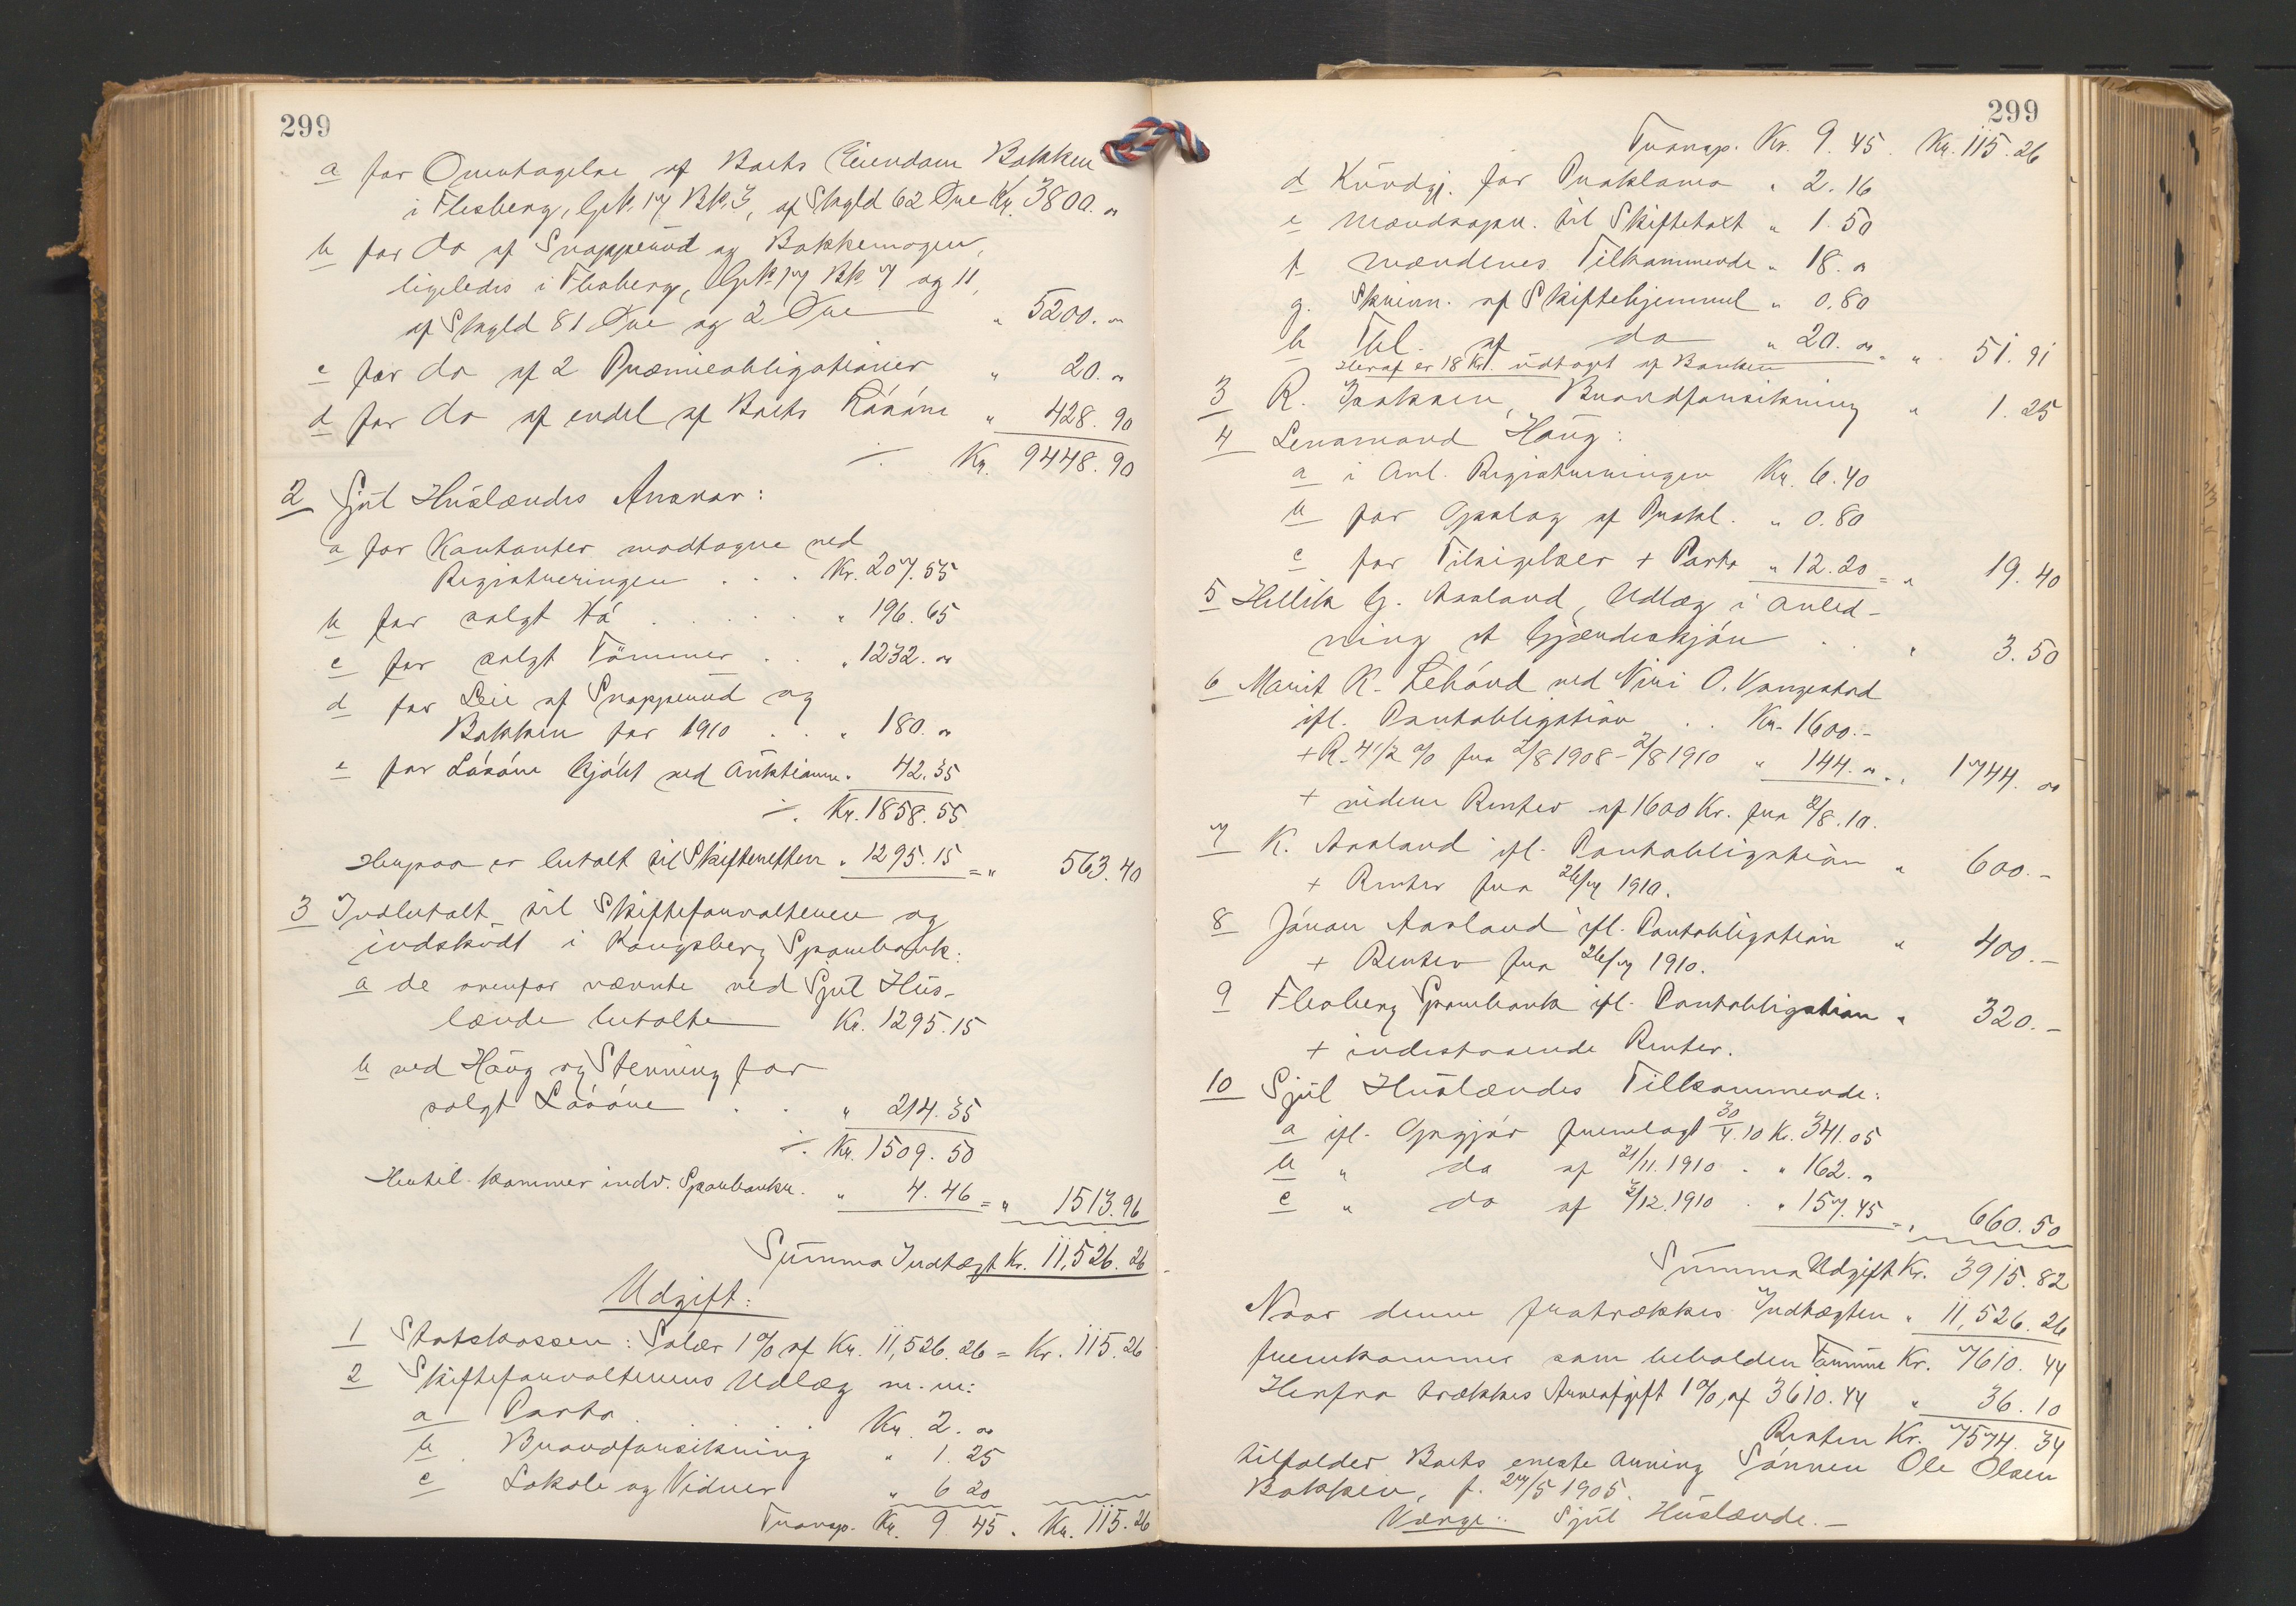 299
a for Overtagelse af Boets Eiendom Bakken
i Flesberg, Gpk. 17 Bk. 3, af Skyld 62 Øre Kr. 3800. "
b for do af Snapperud og Bakkemogen,
ligeledes i Flesberg, Gpk 17 Bk 7 og 11,
af Skyld 81 Øre og 2 Øre " 5200. "
c for do af 2 Præmieobligationer " 20. "
d for do af endel af Boets Løsøre " 428. 90
÷ Kr. 9448. 90
2 Sjul Huslændes Ansvar:
a for Kontanter modtagne ved
Registreringen . . . Kr. 207. 55
b for solgt Hø . . . . . " 196. 65
c for solgt Tømmer . . " 1232. "
d for Leie af Snapperud og
Bakken for 1910 . . " 180. "
e for Løsøre kjøbt ved Auktionen " 42. 35
÷ Kr. 1858. 55
Herpaa er betalt til Skifteretten " 1295. 15 = " 563. 40
3 Indbetalt til Skifteforvalteren og
indskudt i Kongsberg Sparebank:
a de ovenfor nævnte ved Sjul Hus-
lænde betalte Kr. 1295. 15
b ved Haug og Stenning for
solgt Løsøre . . " 214. 35
÷ Kr. 1509. 50
Hertil kommer indv. Sparebankr. " 4. 46 = " 1513. 96
Summa Indtægt Kr. 11,526. 26
Udgift:
1 Statskassen: Salær 1 % af Kr. 11,526. 26 = Kr. 115. 26
2 Skifteforvalterens Udlæg m. m:
a Porto . . . Kr. 2. "
b Brandforsikning " 1. 25
c Lokale og Vidner " 6 20
Transp. Kr. 9 45. Kr. 115. 26
299
Transp. Kr. 9. 45. Kr. 115. 26
d Kundgj. for Proklama " 2. 16
e Mændsopn. til Skiftetaxt " 1. 50
f Mændenes Tilkommende " 18. "
g. Skrivn. af Skiftehjemmel " 0. 80
h Thl. af do " 20. " = " 51. 91
Heraf er 18 Kr. udtaget af Banken
3 R. Isaksen, Brandforsikning " 1. 25
4 Lensmand Haug:
a i Anl. Registreringen Kr. 6. 40
b for Opslag af Prokl. " 0. 80
c for Tilsigelser + Porto " 12. 20 = " 19. 40
5 Hellik G. Aasland, Udlæg i Anled-
ning et Gjændeskjøn . . " 3. 50
6 Marit K. Lehovd ved Niri O. Vangestad
ifl. Pantobligation . . Kr. 1600. -
+ R. 4 1/2 % fra 2/8 1908 - 2/8 1910 " 144. " = " 1744. "
+ videre Renter af 1600 Kr. fra 2/8. 10.
7 K. Aasland ifl. Pantobligation " 600. -
+ Renter fra 26/7 1910.
8 Jøran Aasland ifl. Pantobligation " 400. -
+ Renter fra 26/7 1910.
9 Flesberg Sparebank ifl. Pantobligation " 320. -
+ indestaaende Renter.
10 Sjul Huslændes Tilkommende:
a ifl. Opgjør fremlagt 30/4. 10 Kr. 341. 05
b " do af 21/11. 1910 . " 162. "
c " do af 2/12. 1910 . " 157. 45 = " 660. 50
Summa Udgift Kr. 3915. 82
Naar denne fratrækkes Indtægten " 11,526. 26
fremkommer som beholden Formue Kr. 7610. 44
Herfra trækkes Arveafgift 1 % af 3610. 44 " 36. 10
Resten Kr. 7574. 34
tilfalder Boets eneste Arving Sønnen Ole Olsen
Bakken, f. 27/5 1905.
Værge: Sjul Huslænde. -